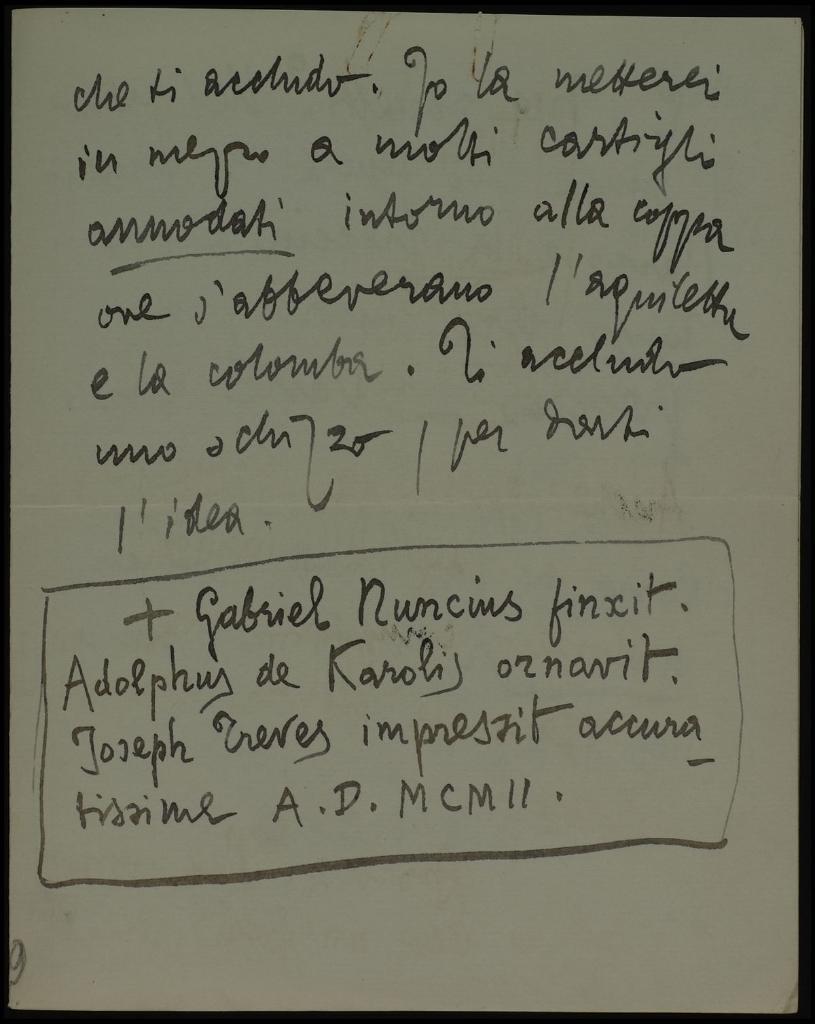 che ti accludo. Io la metterei
in mezzo a molti cartigli
annodati intorno alla coppa
ove s'abbeverano l'aquiletta
e la colomba. Ti accludo
uno schizzo, per darti
l'idea.
+ Gabriel Nuncius finxit.
Adolphus de Karolis ornavit.
Joseph Treves impressit accura_
tissime A.D. MCMII.
9